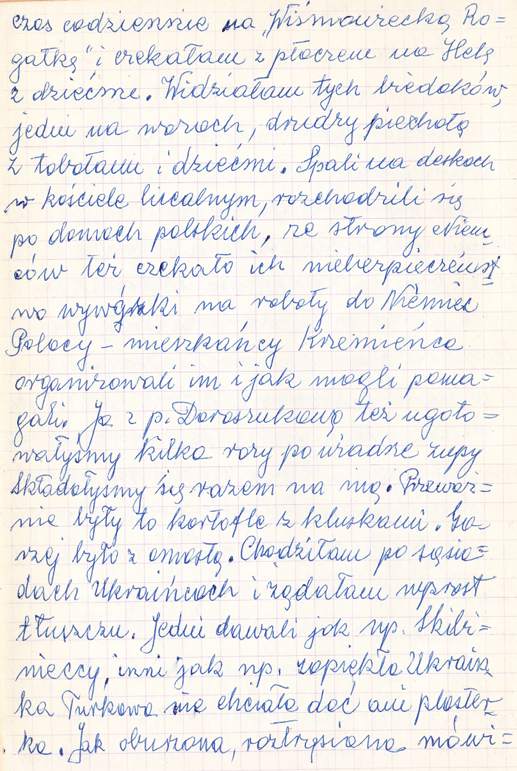 czas codziennie na „Wiśniowiecką Ro=
gatkę" i czekałam z płaczem na Helę
z dziećmi. Widziałam tych biedaków,
jedni na wozach, drudzy piechotą
z tobołami i dziećmi. Spali na deskach
w kościele licealnym, rozchodzili się
po domach polskich, ze strony Niem=
ców też czekało ich niebezpieczeńst
wo wywózki na roboty do Niemiec
Polacy – mieszkańcy Krzemieńca
organizowali im i jak mogli poma=
gali. Ja z p. Doroszukową też ugoto=
wałyśmy kilka razy po wiadrze zupy
składałyśmy się razem na nią. Przeważ=
nie były to kartofle z kluskami. Go
rzej było z omastą. Chodziłam po sąsia=
dach Ukraińcach i żądałam wprost
tłuszczu. Jedni dawali jak np. Skibi=
nieccy, inni jak np. zapiekła Ukrain
ka Turkowa nie chciała dać ani plaster=
ka. Jak oburzona, roztrzęsiona mówi=